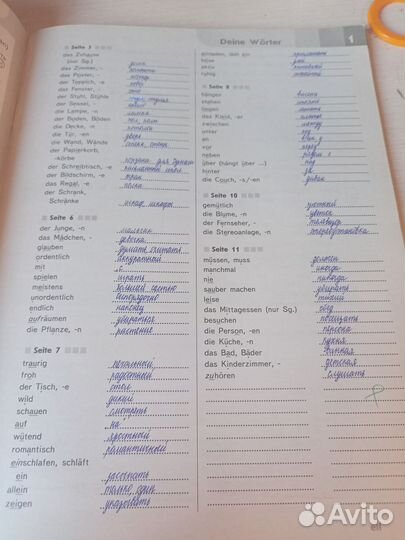 Deine Wörter
1
Seite 5
das Zuhause
(nur Sg.) дома
das Zimmer, - комната
das Poster, -
der Teppich, -e ковёр
das Fenster, - окно
der Stuhl, Stühle
der Sessel, -
die Lampe, -n лампа
der Boden, Böden
die Decke, -n потолок
die Tür, -en дверь
die Wand, Wände
der Papierkorb,
-körbe корзина для бумаг
der Schreibtisch, -e
der Bildschirm, -e
das Regal, -e полка
der Schrank,
Schränke шкаф, шкафы
Seite 6
der Junge, -n мальчик
das Mädchen, - девочка
glauben думать, считать
ordentlich аккуратный
mit с
spielen играть
meistens
unordentlich
endlich наконец
aufräumen
die Pflanze, -n растения
Seite 7
traurig печальный
froh радостный
der Tisch, -e стол
wild дикий
schauen смотреть
auf на
wütend яростный
romantisch романтичный
einschlafen, schläft
ein засыпать
allein только один
zeigen указывать
böse злой
aktiv активный
ruhig
Seite 8
hängen висеть
stehen стоять
liegen лежать
das Kleid, -er платье
zwischen между
unter под
an
vor перед
neben рядом с
über (hängt über ...) над
hinter за
die Couch, -s/-en диван
Seite 10
gemütlich уютный
die Blume, -n цветок
der Fernseher, - телевизор
die Stereoanlage, -n
Seite 11
müssen, muss должен
manchmal иногда
nie никогда
sauber machen убирать
leise тихий
das Mittagessen (nur Sg.) обед
besuchen посещать
die Person, -en персона
die Küche, -n кухня
das Bad, Bäder ванная
das Kinderzimmer, - детская
zuhören слушать
elf
Avito